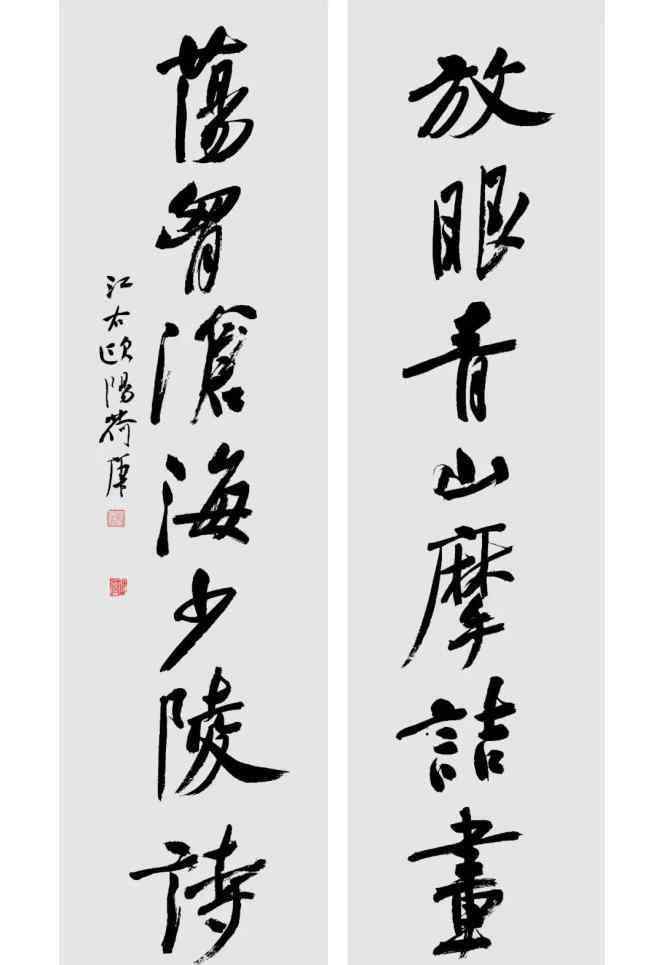 放眼青山摩詰畫
蕩胷滄海少陵詩
江右歐陽荷庚